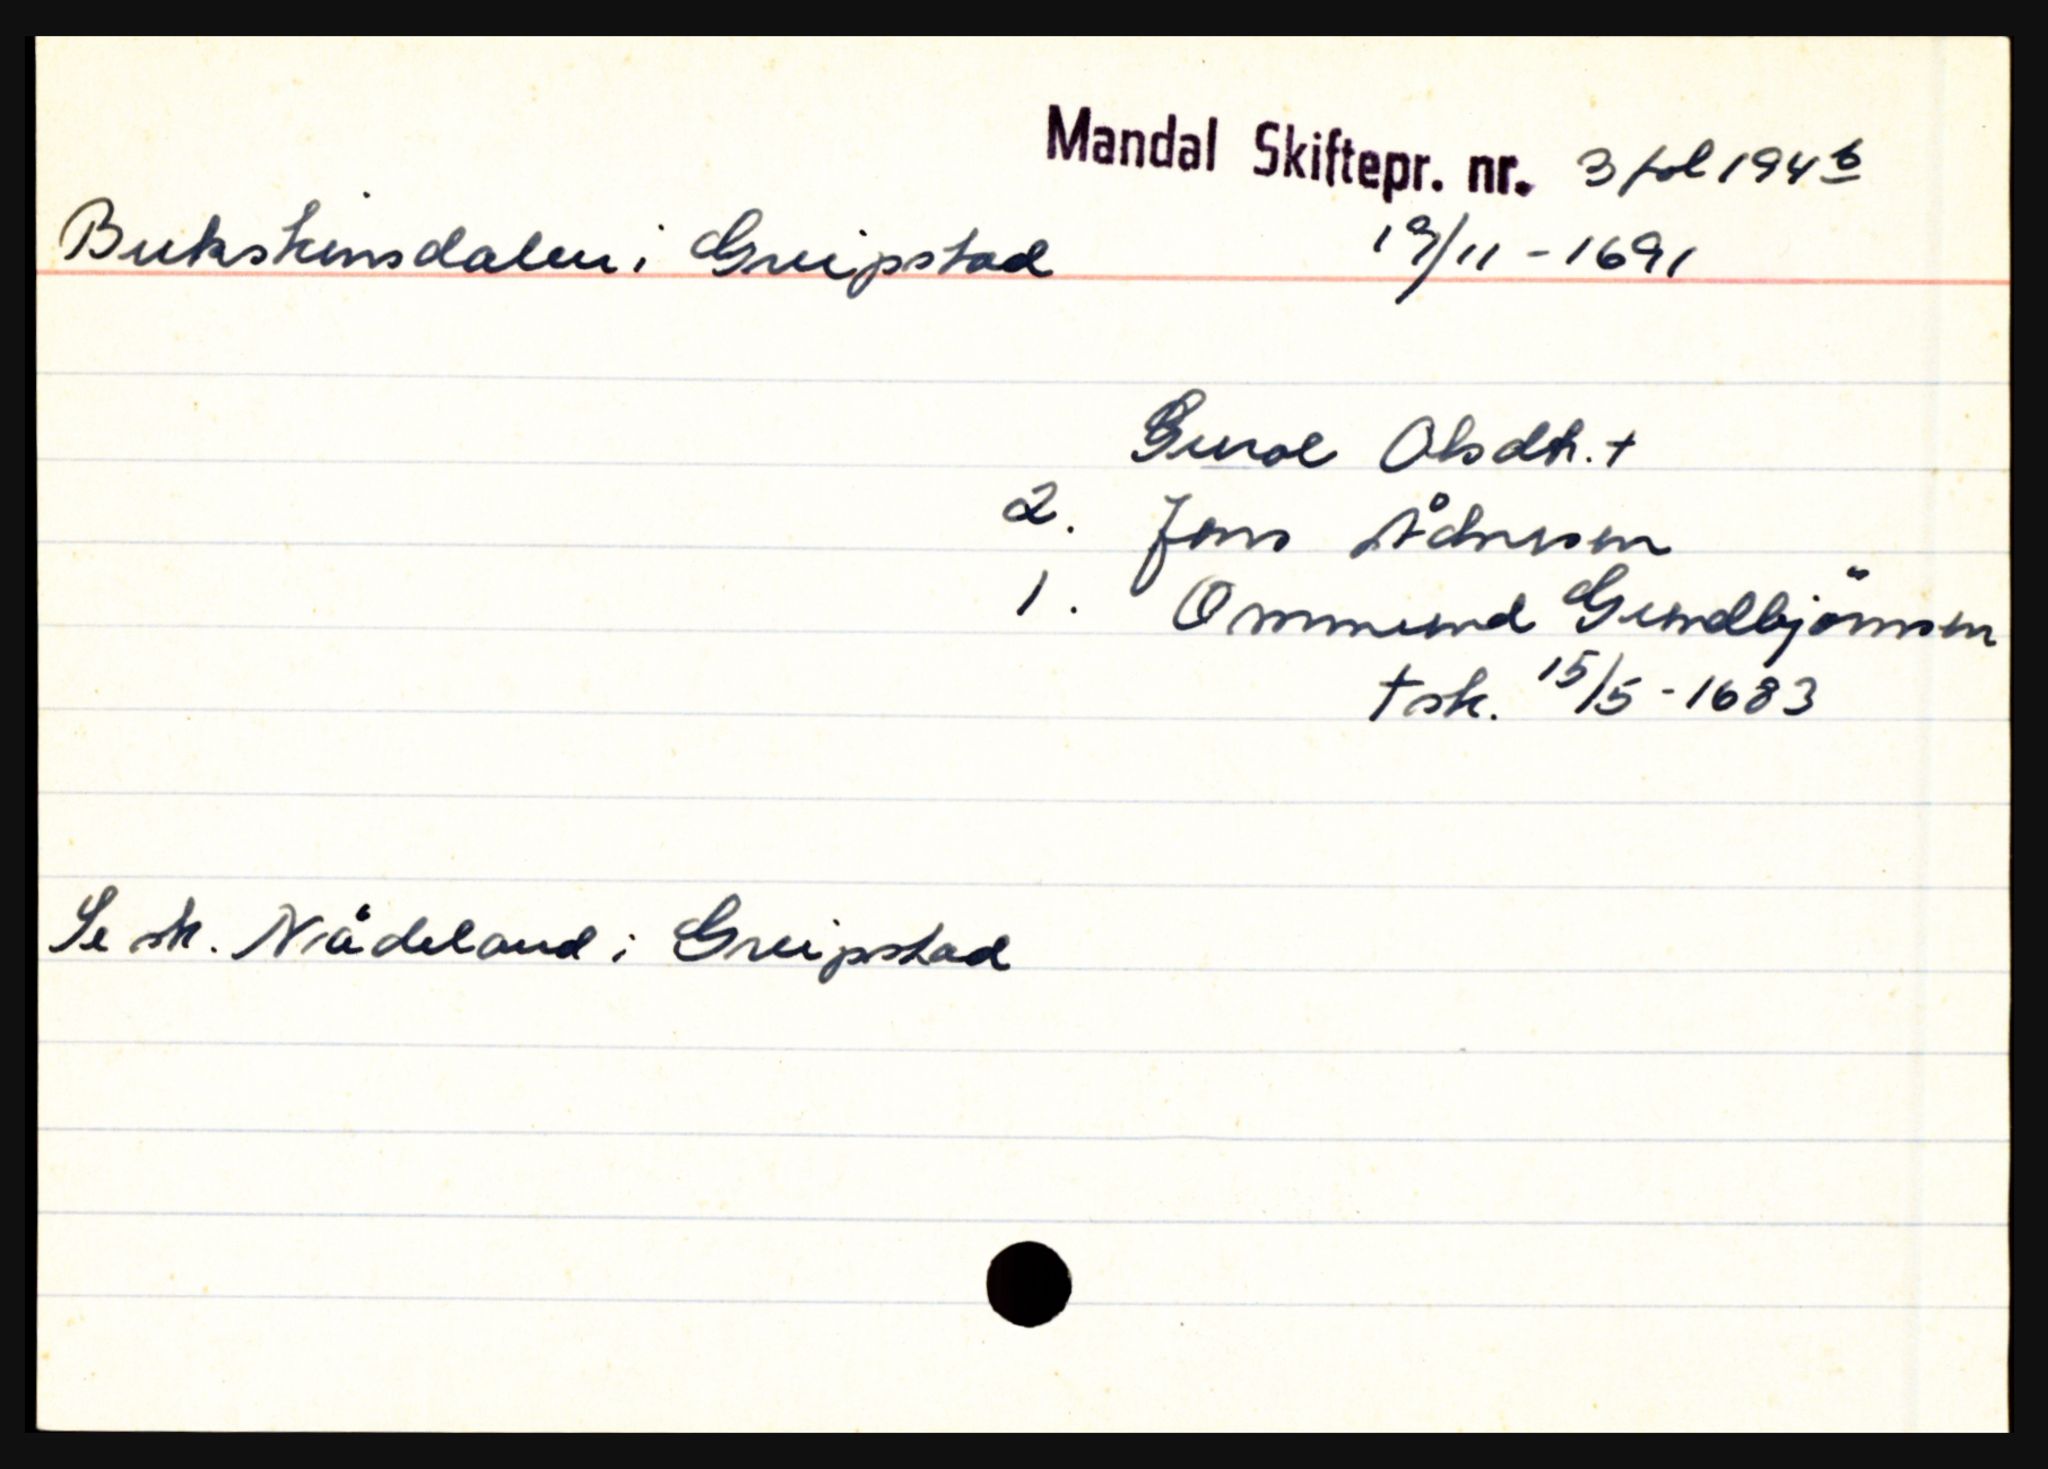 Mandal Skiftepr. nr. 3 fol 194 b
Bukskinsdalen i Greipstad 19/11 - 1691
Gurol Olsdtr. +
2. Jens Ådnesen
1. Ommund Gundbjörnsen
+ sk. 15/5 - 1683
Se sk. Nådeland i Greipstad